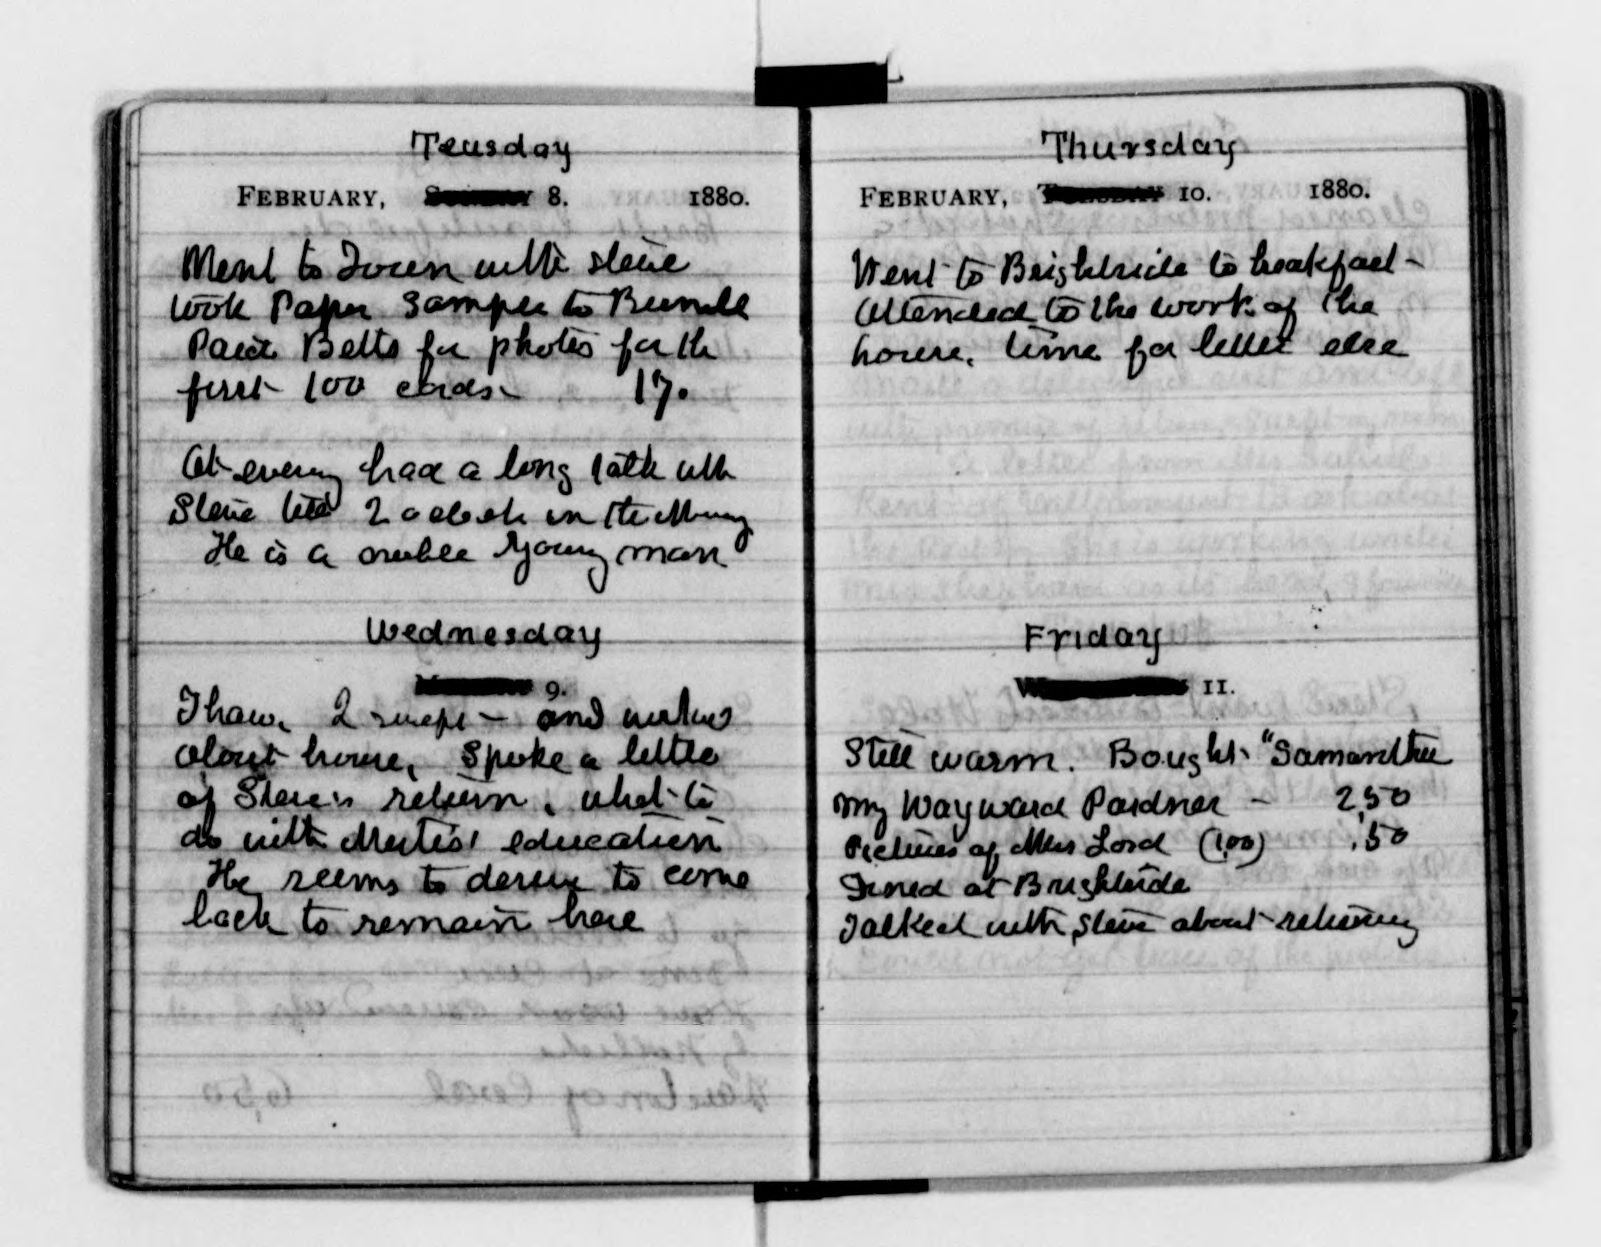 Teusday
FEBRUARY, SUNDAY 8. 1880.
Went to Town with Steve
took Paper Sample to
Paid Betts for photos for th
first 100 cards - 17.
At eveng had a long talk with
Steve till 2 oclock in the Morng
He is a noble young man
Wednesday
9.
Thaw. 2 - and
about home, Spoke a little
of Steve's return, what to
do with education
He seems to desire to come
back to remain here
Thursday
FEBRUARY, TUESDAY 10. 1880.
Went to Brightside to breakfast -
Attended to the work of the
house, time for little else
Friday
11.
Still warm. Bought "Samantha
My Wayward Pardner - 2,50
Pictures of Mrs Lord (100) ,50
Dined at Brightside
Talked with Steve about returning